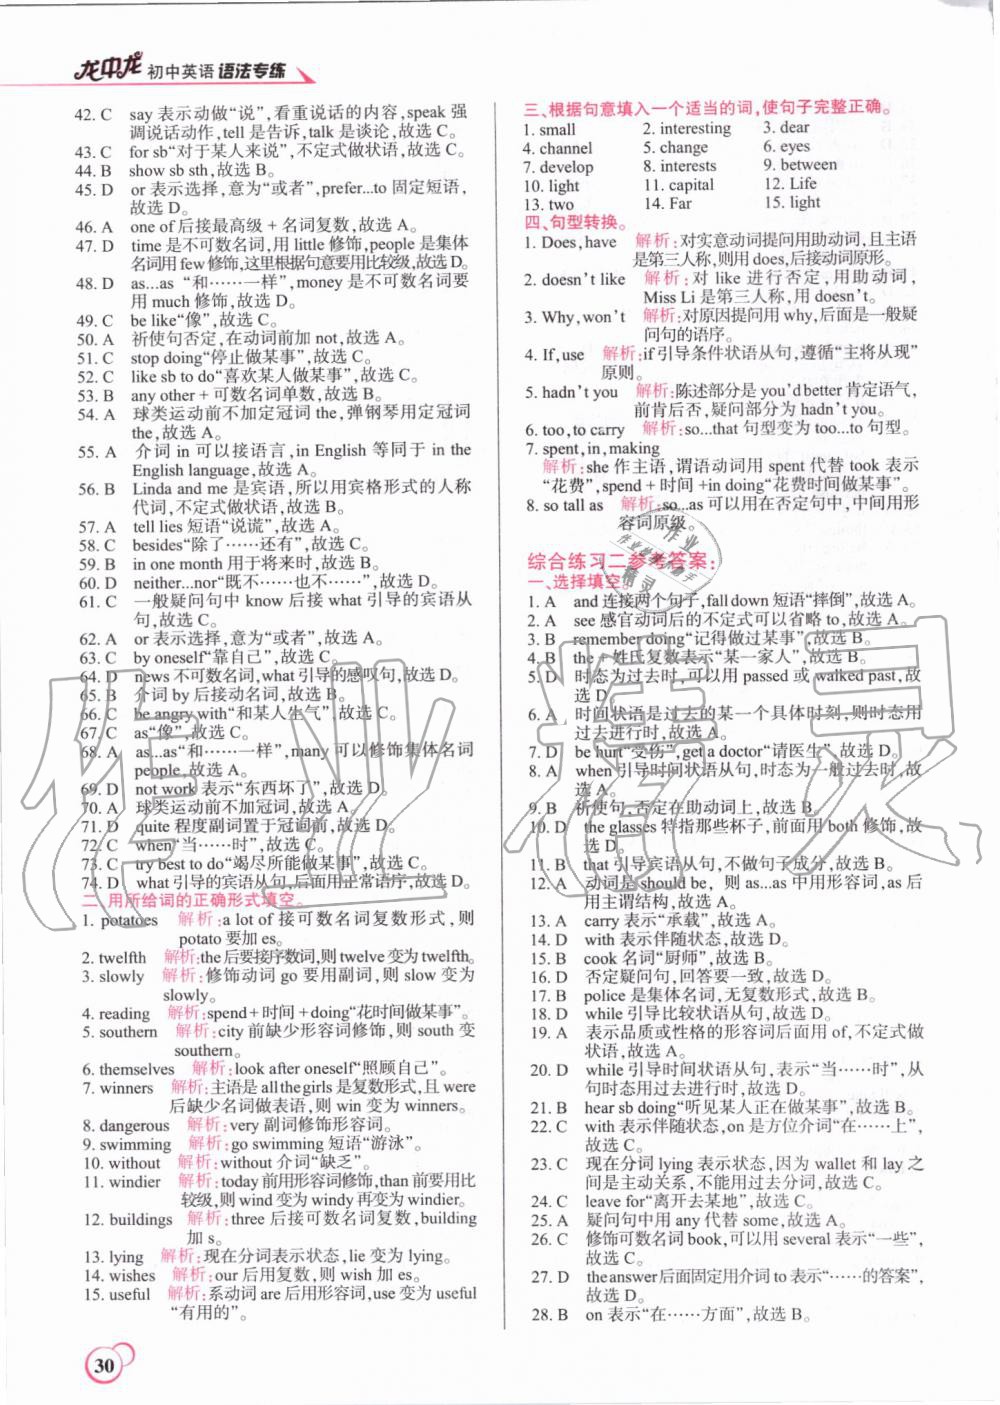 龙中龙 初中英语 语法专练
42. C say 表示动做“说”,看重说话的内容,speak 强
调说话动作,tell 是告诉,talk 是谈论,故选 C。
43. C for sb“对于某人来说”,不定式做状语,故选 C。
44. B show sb sth,故选 B。
45. D or 表示选择,意为“或者”,prefer...to 固定短语,
故选 D。
46. A one of 后接最高级 + 名词复数,故选 A。
47. D time 是不可数名词,用 little 修饰,people 是集体
名词用 few 修饰,这里根据句意要用比较级,故选 D。
48. D as...as “和……一样”,money 是不可数名词要
用 much 修饰,故选 D。
49. C be like“像”,故选 C。
50. A 祈使句否定,在动词前加 not,故选 A。
51. C stop doing“停止做某事”,故选 C。
52. C like sb to do“喜欢某人做某事”,故选 C。
53. B any other + 可数名词单数,故选 B。
54. A 球类运动前不加定冠词 the,弹钢琴用定冠词
the,故选 A。
55. A 介词 in 可以接语言,in English 等同于 in the
English language,故选 A。
56. B Linda and me 是宾语,所以用宾格形式的人称
代词,不定式做状语,故选 B。
57. A tell lies 短语“说谎”,故选 A。
58. C besides“除了……还有”,故选 C。
59. B in one month 用于将来时,故选 B。
60. D neither...nor“既不……也不……”,故选 D。
61. C 一般疑问句中 know 后接 what 引导的宾语从
句,故选 C。
62. A or 表示选择,意为“或者”,故选 A。
63. C by oneself“靠自己”,故选 C。
64. D news 不可数名词,what 引导的感叹句,故选 D。
65. B 介词 by 后接动名词,故选 B。
66. C be angry with“和某人生气”,故选 C。
67. C as“像”,故选 C。
68. A as...as“和……一样”,many 可以修饰集体名词
people,故选 A。
69. D not work 表示“东西坏了”,故选 D。
70. A 球类运动前不加冠词,故选 A。
71. D quite 程度副词置于冠词前,故选 D。
72. C when“当……时”,故选 C。
73. C try best to do“竭尽所能做某事”,故选 C。
74. D what 引导的宾语从句,后面用正常语序,故选 D。
二、用所给词的正确形式填空。
1. potatoes 解析:a lot of 接可数名词复数形式,则
potato 要加 es。
2. twelfth 解析:the 后要接序数词,则 twelve 变为 twelfth。
3. slowly 解析:修饰动词 go 要用副词,则 slow 变为
slowly。
4. reading 解析:spend + 时间 + doing“花时间做某事”。
5. southern 解析:city 前缺少形容词修饰,则 south 变
southern。
6. themselves 解析:look after oneself“照顾自己”。
7. winners 解析:主语是 all the girls 是复数形式,且 were
后缺少名词做表语,则 win 变为 winners。
8. dangerous 解析:very 副词修饰形容词。
9. swimming 解析:go swimming 短语“游泳”。
10. without 解析:without 介词“缺乏”。
11. windier 解析:today 前用形容词修饰,than 前要用比
较级,则 wind 变为 windy 再变为 windier。
12. buildings 解析:three 后接可数名词复数,building
加 s。
13. lying 解析:现在分词表示状态,lie 变为 lying。
14. wishes 解析:our 后用复数,则 wish 加 es。
15. useful 解析:系动词 are 后用形容词,use 变为 useful
“有用的”。
三、根据句意填入一个适当的词,使句子完整正确。
1. small 2. interesting 3. dear
4. channel 5. change 6. eyes
7. develop 8. interests 9. between
10. light 11. capital 12. Life
13. two 14. Far 15. light
四、句型转换。
1. Does,have 解析:对实意动词提问用助动词,且主语
是第三人称,则用 does,后接动词原形。
2. doesn't like 解析:对 like 进行否定,用助动词,
Miss Li 是第三人称,用 doesn't。
3. Why,won't 解析:对原因提问用 why,后面是一般疑
问句的语序。
4. If,use 解析:if 引导条件状语从句,遵循“主将从现”
原则。
5. hadn't you 解析:陈述部分是 you'd better 肯定语气,
前肯后否,疑问部分为 hadn't you。
6. too,to carry 解析:so...that 句型变为 too...to 句型。
7. spent,in,making
解析:she 作主语,谓语动词用 spent 代替 took 表示
“花费”,spend + 时间 +in doing“花费时间做某事”。
8. so tall as 解析:so...as 可以用在否定句中,中间用形
容词原级。
综合练习二参考答案:
一、选择填空。
1. A and 连接两个句子,fall down 短语“摔倒”,故选 A。
2. A see 感官动词后的不定式可以省略 to,故选 A。
3. B remember doing“记得做过某事”,故选 B。
4. B the + 姓氏复数表示“某一家人”,故选 B。
5. D 时态为过去时,可以用 passed 或 walked past,故
选 D。
6. A 时间状语是过去的某一个具体时刻,则时态用
过去进行时,故选 A。
7. D be hurt“受伤”,get a doctor“请医生”,故选 D。
8. A when 引导时间状语从句,时态为一般过去时,故
选 A。
9. B 祈使句,否定在助动词上,故选 B。
10. D the glasses 特指那些杯子,前面用 both 修饰,故
选 D。
11. B that 引导宾语从句,不做句子成分,故选 B。
12. A 动词是 should be，则 as...as 中用形容词,as 后
用主谓结构,故选 A。
13. A carry 表示“承载”,故选 A。
14. D with 表示伴随状态,故选 D。
15. B cook 名词“厨师”,故选 B。
16. D 否定疑问句,回答要一致,故选 D。
17. B police 是集体名词,无复数形式,故选 B。
18. D while 引导比较状语从句,故选 D。
19. A 表示品质或性格的形容词后面用 of,不定式做
状语,故选 A。
20. D while 引导时间状语从句,表示“当……时”,从
句时态用过去进行时,故选 D。
21. B hear sb doing“听见某人正在做某事”,故选 B。
22. C with 表示伴随状态,on 是方位介词“在……上”,
故选 C。
23. C 现在分词 lying 表示状态,因为 wallet 和 lay 之
间是主动关系,不能用过去分词,故选 C。
24. C leave for“离开去某地”,故选 C。
25. A 疑问句中用 any 代替 some,故选 A。
26. C 修饰可数名词 book,可以用 several 表示“一些”,
故选 C。
27. D the answer 后面固定用介词 to 表示“……的答案”,
故选 D。
28. B on 表示“在……方面”,故选 B。
30
作业精灵